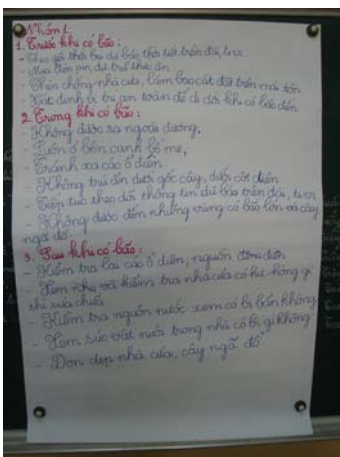 Nhóm 1:
1. Trước khi có bão:
- Theo dõi thời sự dự báo thời tiết trên đài, ti vi.
- Mua đèn pin, dự trữ thức ăn
- Chèn chống nhà cửa, làm bao cát đặt trên mái tôn
- Xác định vị trí an toàn để di dời khi có bão đến
2. Trong khi có bão:
- Không được ra ngoài đường,
- Luôn ở bên cạnh bố mẹ,
- Tránh xa các ổ điện
- Không trú ẩn dưới gốc cây, dưới cột điện
- Tiếp tục theo dõi thông tin dự báo trên đài, ti vi
- Không được đến những vùng có bão lớn và cây
ngã đổ.
3. Sau khi có bão:
- Kiểm tra lại các ổ điện, nguồn điện
- Xem và kiểm tra nhà cửa có hư hỏng gì
thì sửa chữa
- Kiểm tra nguồn nước xem có bị bẩn không
- Xem súc vật nuôi trong nhà có bị gì không
- Dọn dẹp nhà cửa, cây ngã đổ